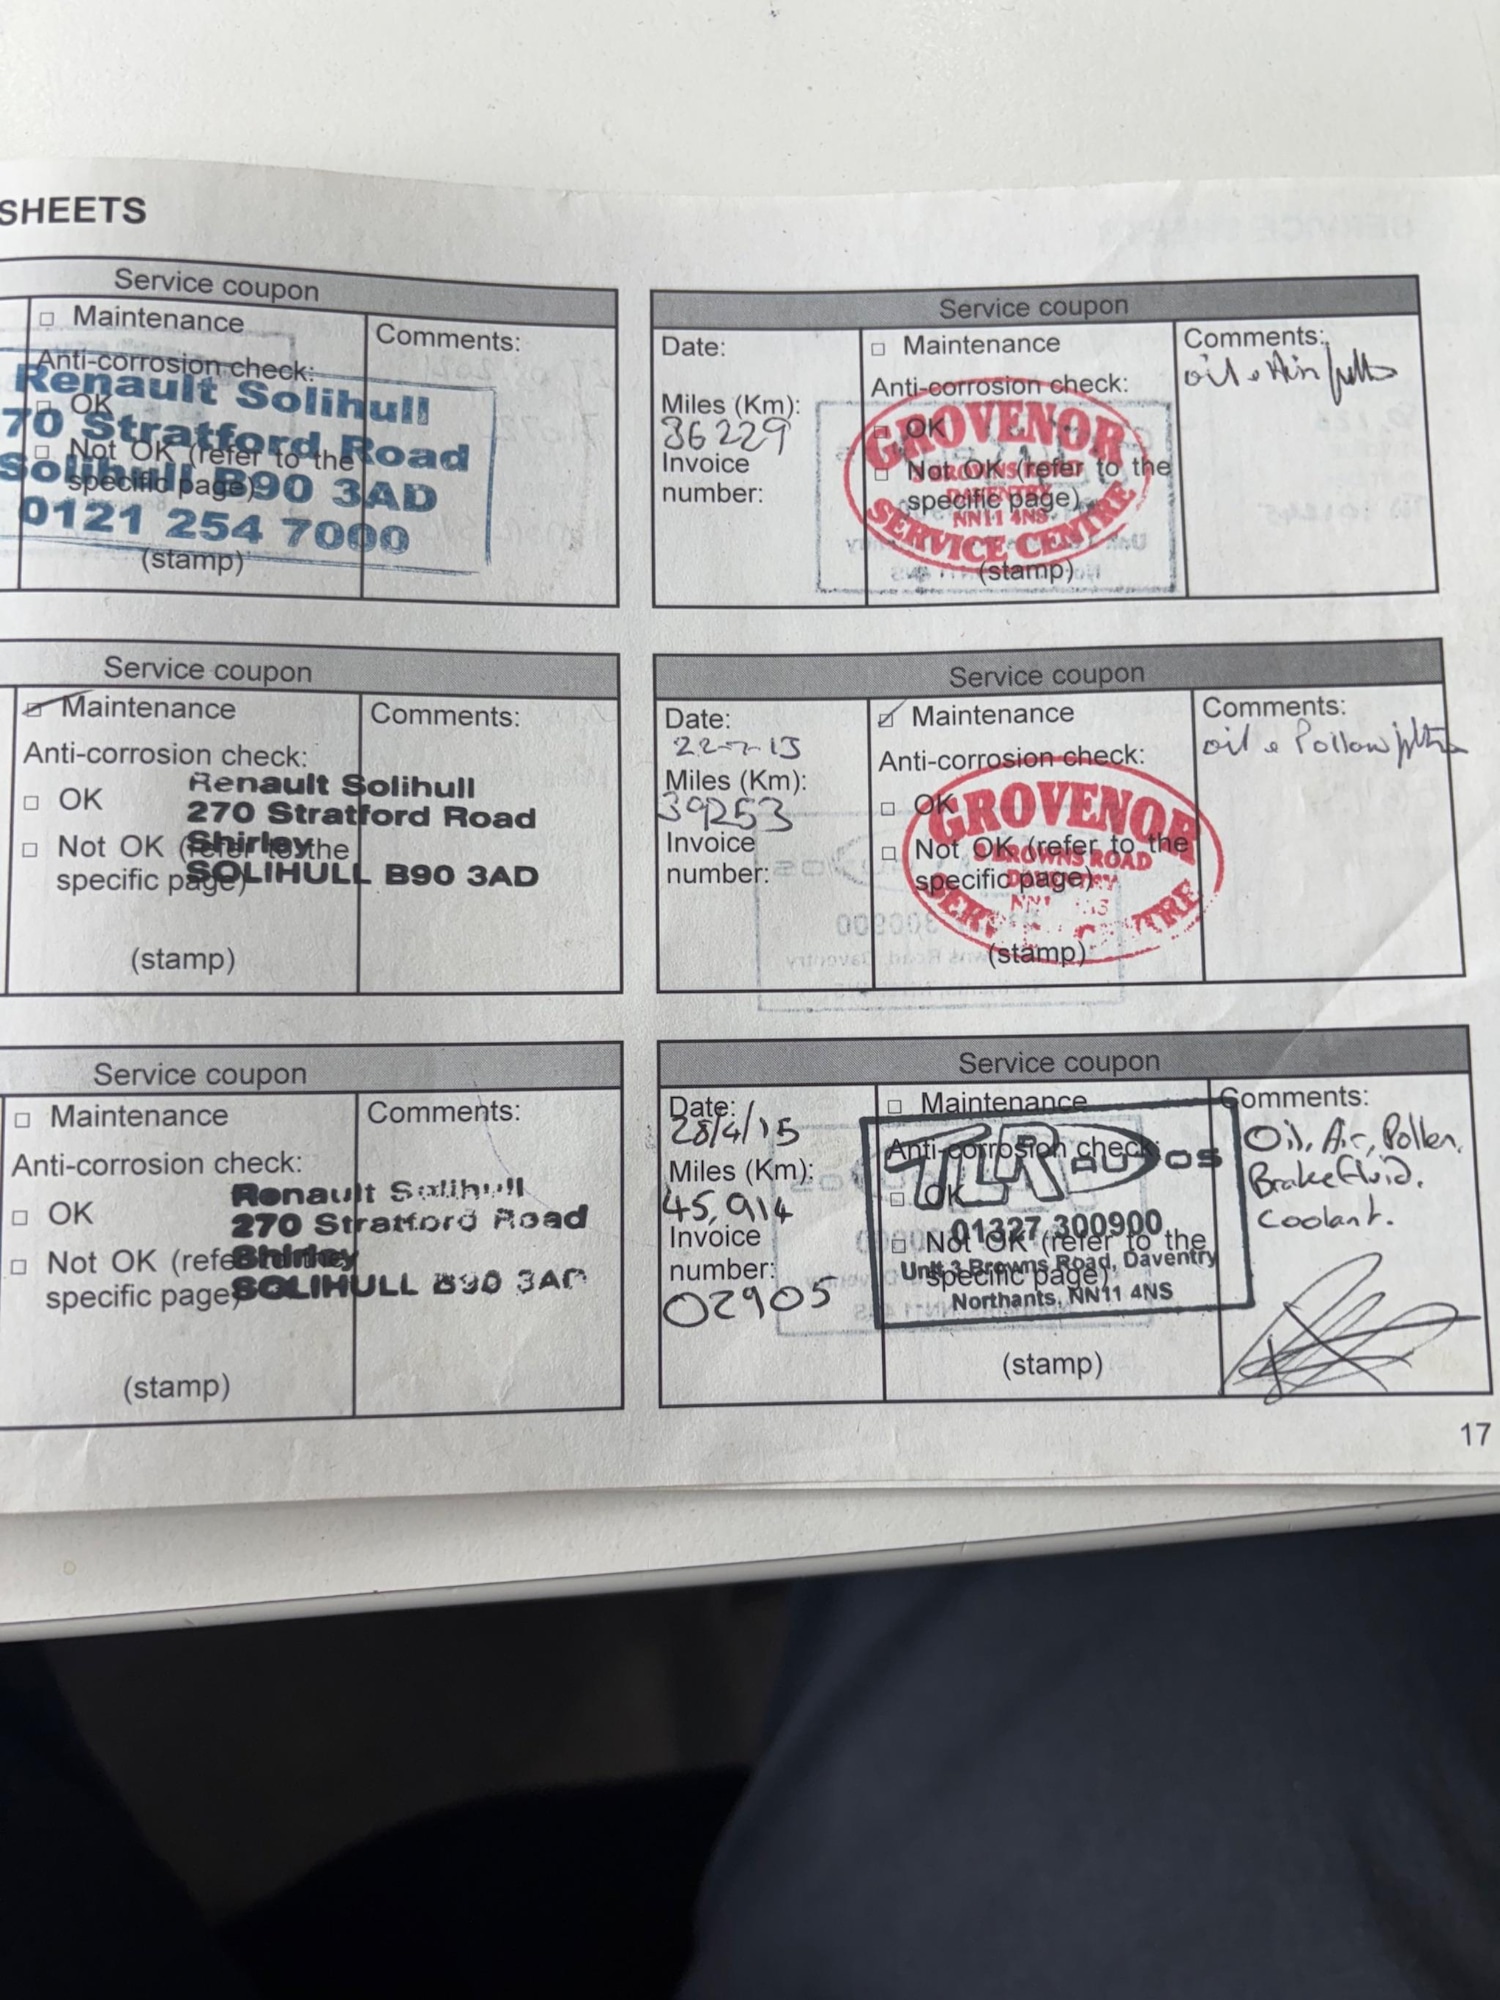 SHEETS
Service coupon
□ Maintenance
Comments:
Anti-corrosion check:
□ OK
□ Not OK (refer to the
specific page)
(stamp)
Renault Solihull
70 Stratford Road
Solihull B90 3AD
0121 254 7000
Service coupon
Date:
□ Maintenance
Comments:
oil &
Anti-corrosion check:
Miles (Km):
36229
□ OK
Invoice
number:
□ Not OK (refer to the
specific page)
(stamp)
GROVENOR
BROWNS ROAD
DAVENTRY
NN11 4NS
SERVICE CENTRE
Service coupon
☑ Maintenance
Comments:
Anti-corrosion check:
□ OK
□ Not OK (refer to the
specific page)
(stamp)
Renault Solihull
270 Stratford Road
Shirley
SOLIHULL B90 3AD
Service coupon
Date:
☑ Maintenance
Comments:
oil &
Anti-corrosion check:
Miles (Km):
39253
□ OK
Invoice
number:
□ Not OK (refer to the
specific page)
(stamp)
GROVENOR
BROWNS ROAD
DAVENTRY
SERVICE CENTRE
Service coupon
□ Maintenance
Comments:
Anti-corrosion check:
□ OK
□ Not OK (refer
specific page)
(stamp)
Renault Solihull
270 Stratford Road
Shirley
SOLIHULL B90 3AD
Service coupon
Date:
28/4/15
□ Maintenance
Comments:
Oil, Air, Pollen,
Brake fluid.
Coolant.
Anti-corrosion check:
Miles (Km):
45,914
□ OK
Invoice
number:
02905
□ Not OK (refer to the
specific page)
(stamp)
TLR AUTOS
01327 300900
Unit 3 Browns Road, Daventry
Northants, NN11 4NS
17